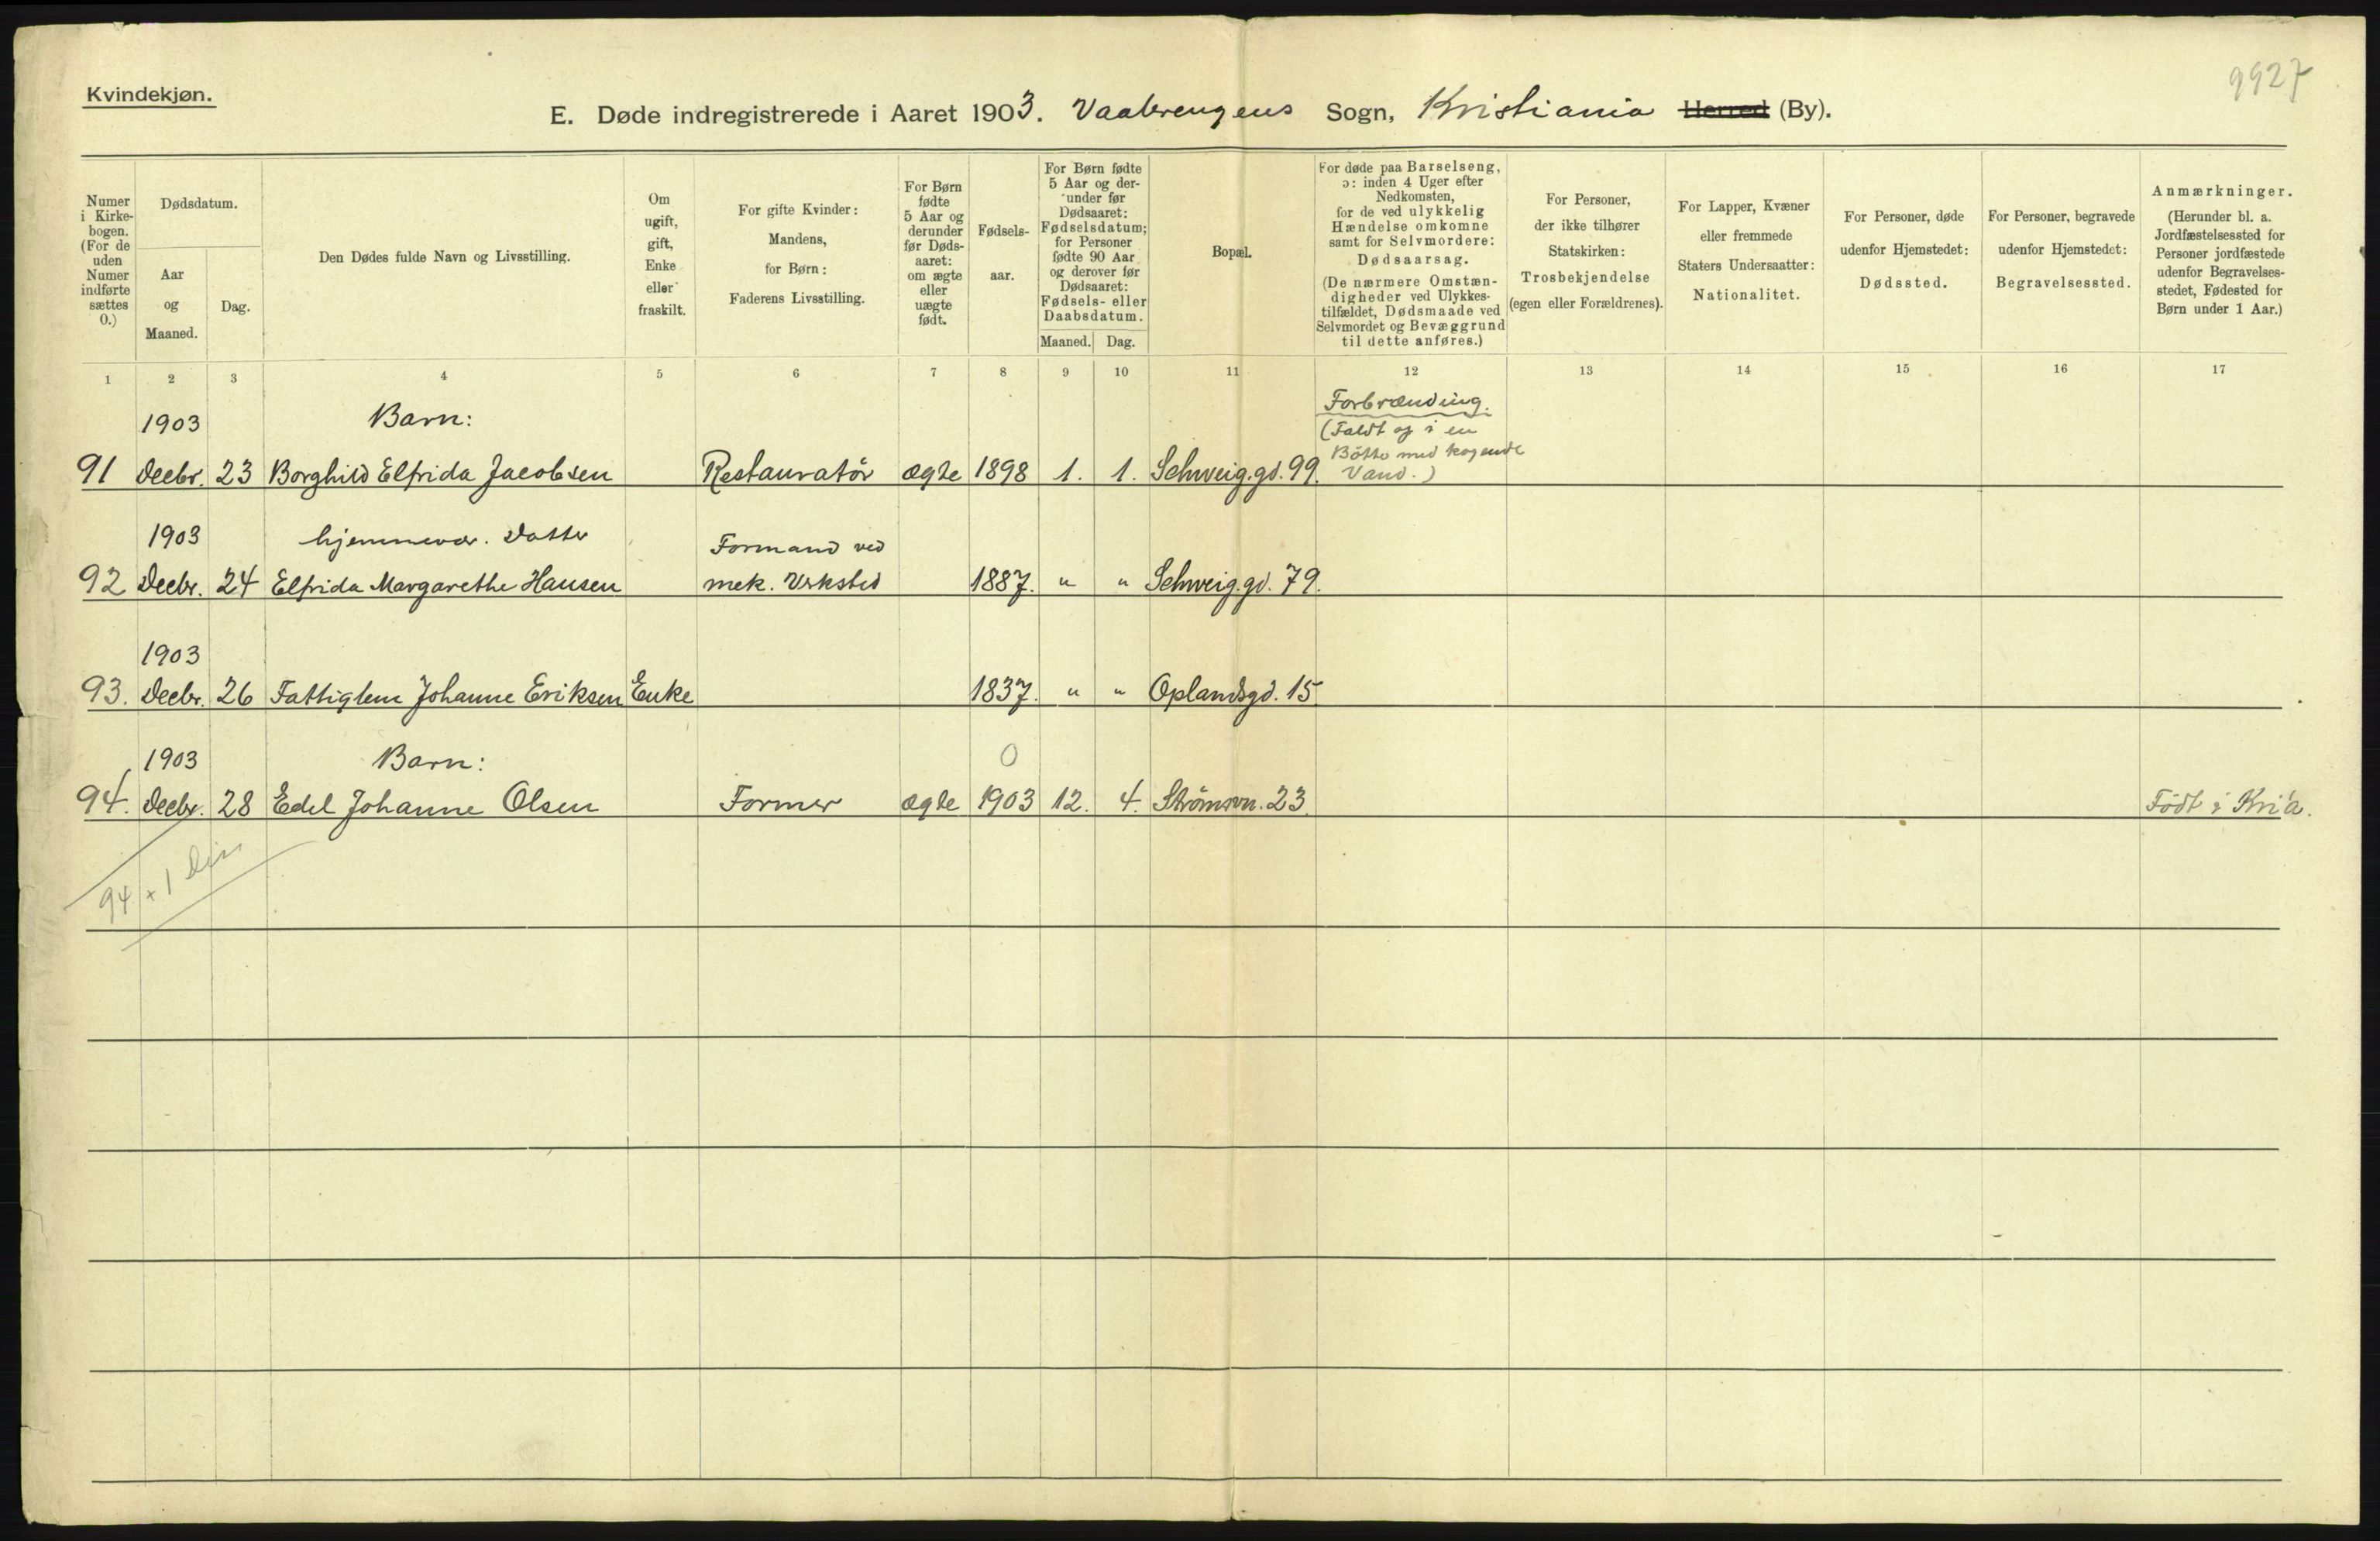 Kvindekjøn.
9927
E. Døde indregistrerede i Aaret 1903. Vaalerengens Sogn, Kristiania Herred (By).
Numer
i Kirke-
bogen.
(For de
uden
Numer
indførte
sættes
0.)
Dødsdatum.
Aar
og
Maaned.
Dag.
Den Dødes fulde Navn og Livsstilling.
Om
ugift,
gift,
Enke
eller
fraskilt.
For gifte Kvinder:
Mandens,
for Børn:
Faderens Livsstilling.
For Børn
fødte
5 Aar og
derunder
før Døds-
aaret:
om ægte
eller
uægte
født.
Fødsels-
aar.
For Børn fødte
5 Aar og der-
under før
Dødsaaret:
Fødselsdatum;
for Personer
fødte 90 Aar
og derover før
Dødsaaret:
Fødsels- eller
Daabsdatum.
Maaned. Dag.
Bopæl.
For døde paa Barselseng,
ɔ: inden 4 Uger efter
Nedkomsten,
for de ved ulykkelig
Hændelse omkomne
samt for Selvmordere:
Dødsaarsag.
(De nærmere Omstæn-
digheder ved Ulykkes-
tilfældet, Dødsmaade ved
Selvmordet og Bevæggrund
til dette anføres.)
For Personer,
der ikke tilhører
Statskirken:
Trosbekjendelse
(egen eller Forældrenes).
For Lapper, Kvæner
eller fremmede
Staters Undersaatter:
Nationalitet.
For Personer, døde
udenfor Hjemstedet:
Dødssted.
For Personer, begravede
udenfor Hjemstedet:
Begravelsessted.
Anmærkninger.
(Herunder bl. a.
Jordfæstelsessted for
Personer jordfæstede
udenfor Begravelses-
stedet, Fødested for
Børn under 1 Aar.)
1 2 3 4 5 6 7 8 9 10 11 12 13 14 15 16 17
1903 Barn: Forbrænding.
(Faldt og i en
Bötte med kogende
91 Decbr. 23 Borghild Elfrida Jacobsen Restauratör ægte 1898 1. 1. Schweig.gd. 99. Vand.)
1903 hjemmevær. Datter Formand ved
92 Decbr. 24 Elfrida Margarethe Hansen mek. Verksted 1887. " " Schweig.gd. 79.
1903
93. Decbr. 26 Fattiglem Johanne Eriksen Enke 1837. " " Oplandsgd. 15.
1903 Barn: 0
94. Decbr. 28 Edel Johanne Olsen Former ægte 1903 12. 4. Strömsvn. 23. Födt i Kri'a.
94 + 1